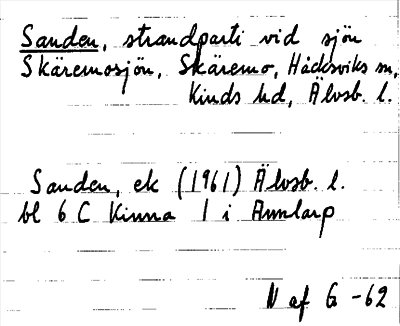 Sanden, strandparti vid sjön
Skäremosjön, Skäremo, Håcksviks sn,
Kinds hd, Älvsb. l.
Sanden, ek (1961) Älvsb. l.
bl 6 C Kinna 1 i Annlarp
N af G -62